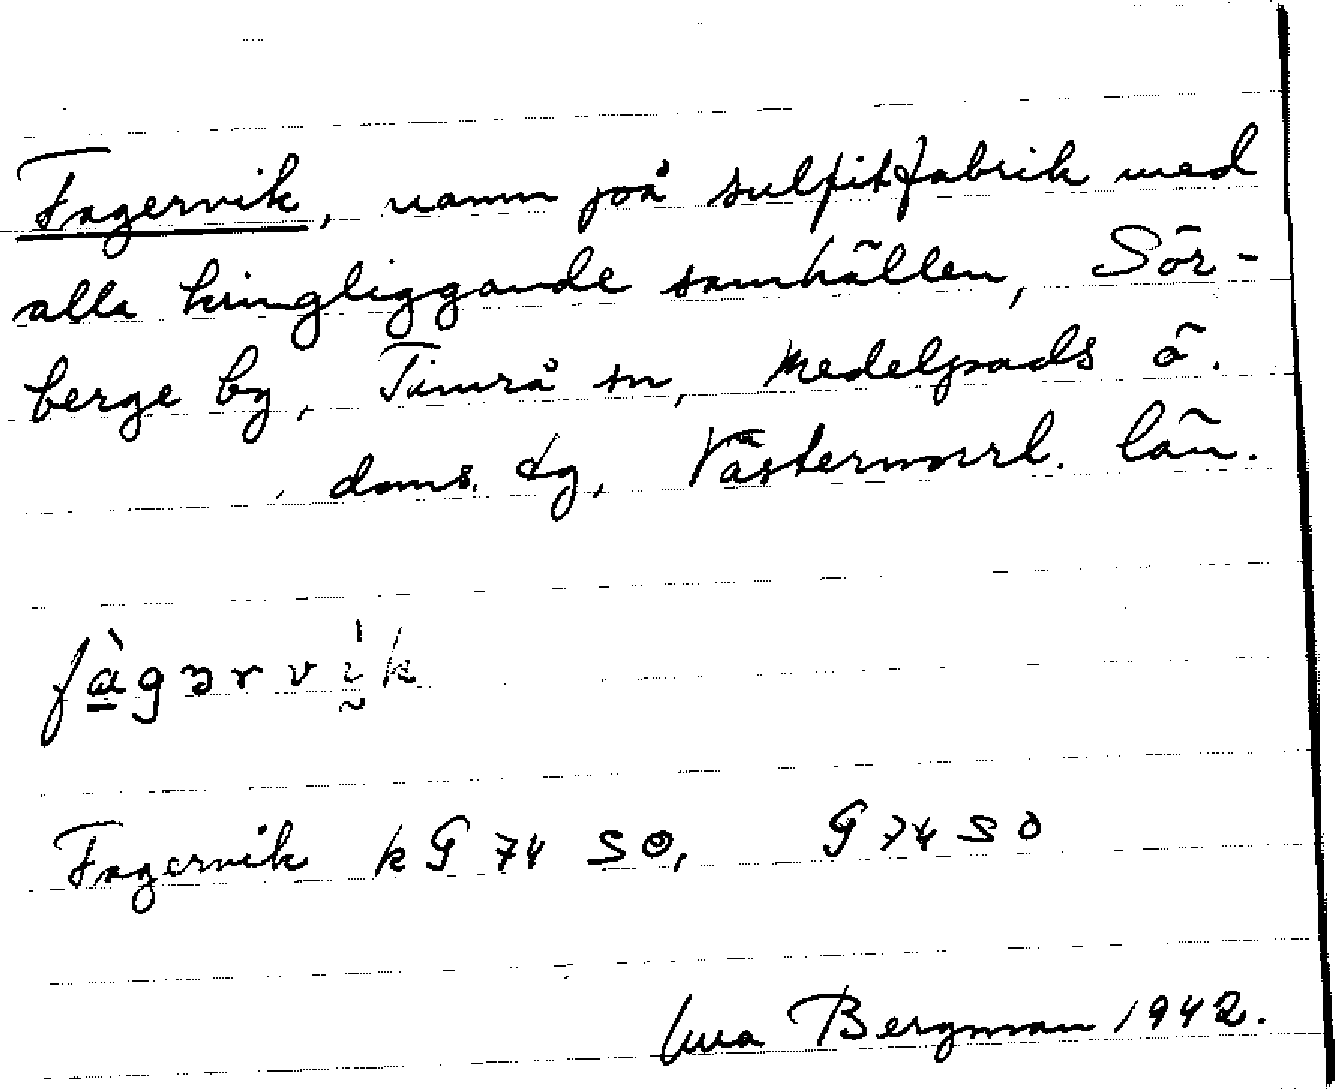 Fagervik, namn på sulfitfabrik med
alla kringliggande samhällen, Sör-
berge by, Timrå sn, Medelpads ö.
doms. dg, Västernorrl. län.
fàgərvḭk
Fagervik kG 74 SO, G 74 SO
Bergman 1942.